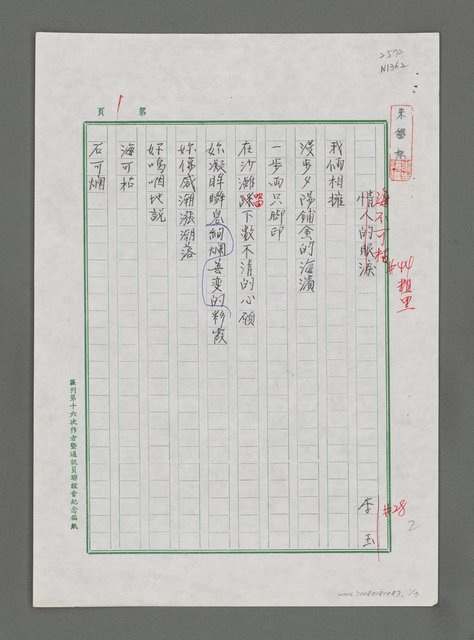 2572
N1362
第 1 頁
海不可枯
情人的眼淚
#44楷黑
李玉
#28
2
我倆相擁
漫步夕陽鋪金的海濱
一步兩只腳印
在沙灘踩留下數不清的心願
妳凝眸瞬息絢爛善變的彩霞
妳傷感潮漲潮落
妳嗚咽地說
海可枯
石可爛
區刊第十六次作者暨通訊員聯誼會紀念稿紙
1/3